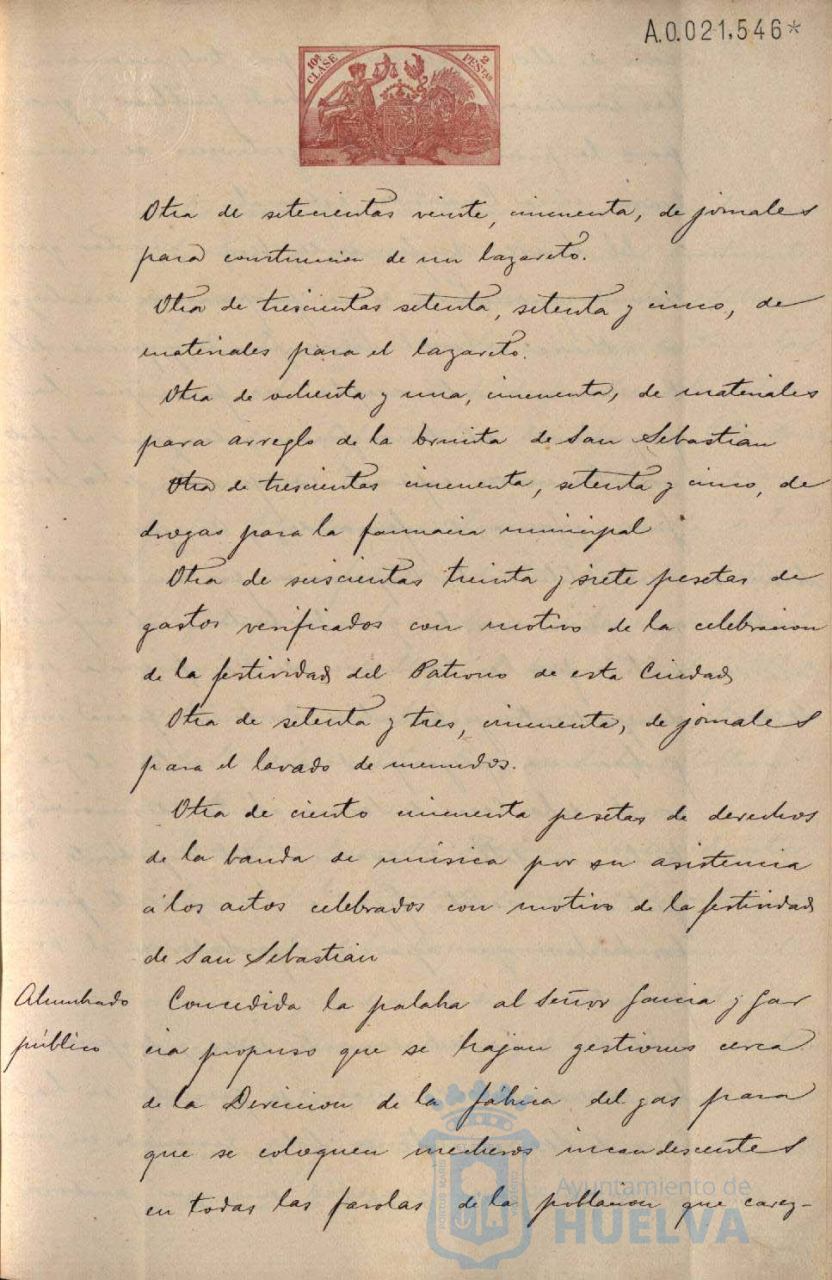 A.0.021,546*
10ª CLASE
2 PESETAS
Otra de setecientas veinte, cincuenta, de jornales
para construccion de un lazareto.
Otra de trescientas setenta, setenta y cinco, de
materiales para el lazareto.
Otra de ochenta y una, cincuenta, de materiales
para arreglo de la Ermita de San Sebastian
Otra de trescientas cincuenta, setenta y cinco, de
drogas para la farmacia municipal
Otra de seiscientas treinta y siete pesetas de
gastos verificados con motivo de la celebracion
de la festividad del Patrono de esta Ciudad
Otra de setenta y tres, cincuenta, de jornales
para el lavado de menudos.
Otra de ciento cincuenta pesetas de derechos
de la banda de música por su asistencia
á los actos celebrados con motivo de la festividad
de San Sebastián
Alumbrado
público
Concedida la palabra al Señor Garcia y Gar
cia propuso que se hagan gestiones cerca
de la Direccion de la fábrica del gas para
que se coloquen mecheros incandescentes
en todas las farolas de la poblacion que carez-
Ayuntamiento de
HUELVA